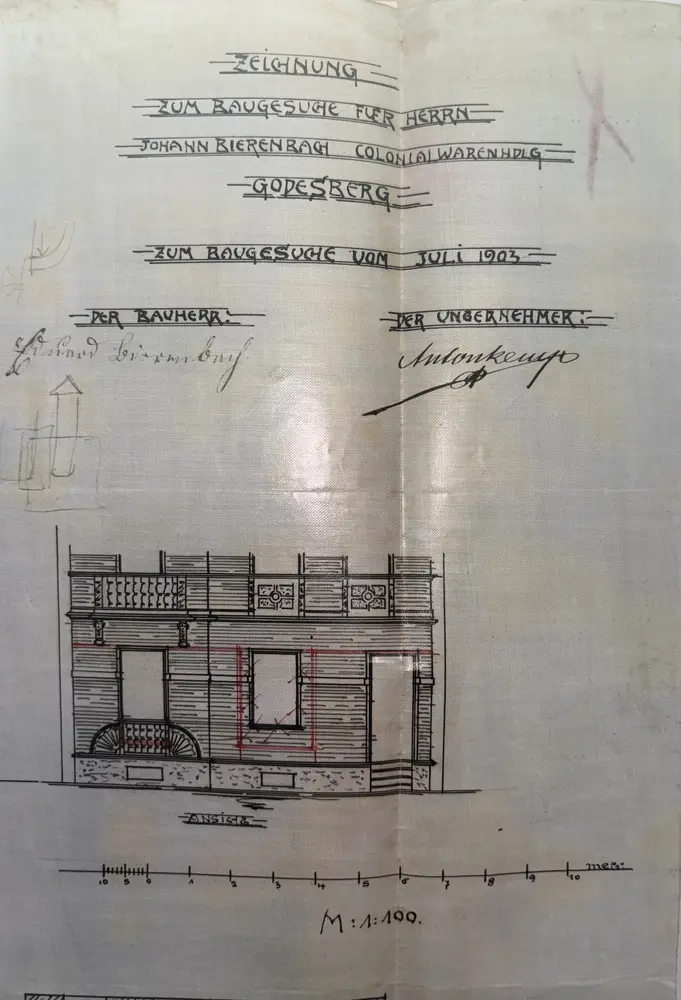 ZEICHNUNG
ZUM BAUGESUCHE FUER HERRN
JOHANN BIERENBACH COLONIALWARENHDLG
GODESBERG
ZUM BAUGESUCHE VOM JULI 1903
DER BAUHERR: DER UNTERNEHMER:
Eduard Bierenbach Anton Kemp
ANSICHT
10 5 0 1 2 3 4 5 6 7 8 9 10 METR:
M:1:100.